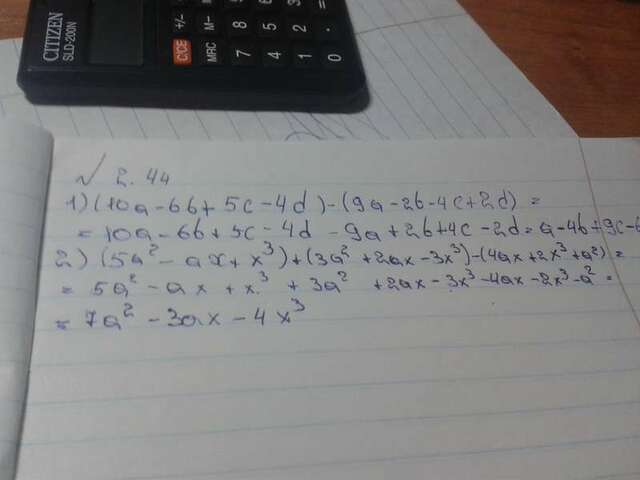 CITIZEN
SLD-200N
C/CE +/-
MRC M-
7 8
4 5
1 2 3
0 . =
√ 2.44
1) (10a-6b+5c-4d)-(9a-2b-4c+2d) =
= 10a-6b+5c-4d-9a+2b+4c-2d=a-4b+9c-6
2) (5a²-ax+x³)+(3a²+2ax-3x³)-(4ax+2x³+a²)=
= 5a²-ax+x³+3a²+2ax-3x³-4ax-2x³-a²=
= 7a²-3ax-4x³